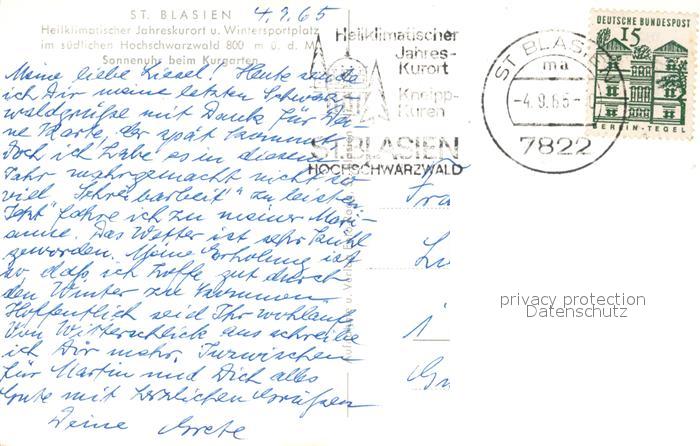 ST. BLASIEN
4.9.65
Heilklimatischer Jahreskurort u. Wintersportplatz
im südlichen Hochschwarzwald 800 m ü. d. M.
Sonnenuhr beim Kurgarten
Meine liebe Liesel! Heute sende
ich Dir meine letzten Schwarz-
waldgrüße mit Dank für Dei-
ne Karte, der spät kommt.
Doch ich habe es in diesem
Jahr wahrgemacht nicht so
viel "Schreibarbeit" zu leisten.
Jetzt fahre ich zu meiner Mari-
anne. Das Wetter ist sehr
geworden. Meine Erholung ist
so, daß ich hoffe gut durch
den Winter zu kommen.
Hoffentlich seid Ihr wohlauf.
Von Witterschlick aus schreibe
ich Dir mehr. Inzwischen
für Martin und Dich alles
Gute mit herzlichen Grüßen
Deine Grete
Heilklimatischer
Jahres-
Kurort
Kneipp-
Kuren
ST. BLASIEN
HOCHSCHWARZWALD
ST BLASIEN
ma
-4.9.65-
7822
DEUTSCHE BUNDESPOST
15
BERLIN-TEGEL
Fra
i
privacy protection
Datenschutz